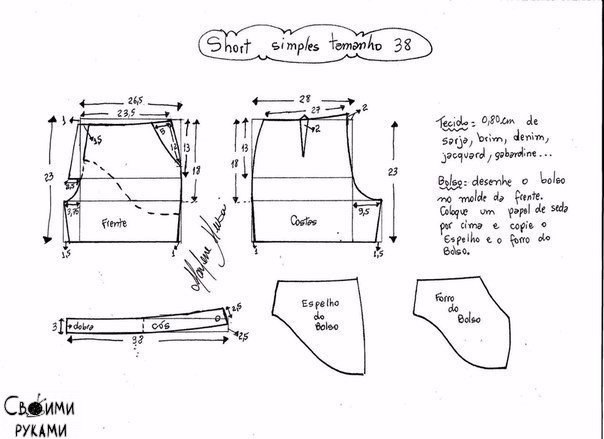 Short simples tamanho 38
26,5
23,5
1
1,5
8
12
13
18
23
2,5
3,75
Frente
1,5
1
28
27
2
2
13
18
23
9,5
Costas
1
1,5
Tecido: 0,80cm de
sarja, brim, denim,
jacquard, gabardine...
Bolso: desenhe o bolso
no molde da frente.
Coloque um papel de seda
por cima e copie o
Espelho e o forro do
Bolso.
3
dobra
cós
2,5
2,5
Espelho
do
Bolso
Forro
do
Bolso
Своими
руками